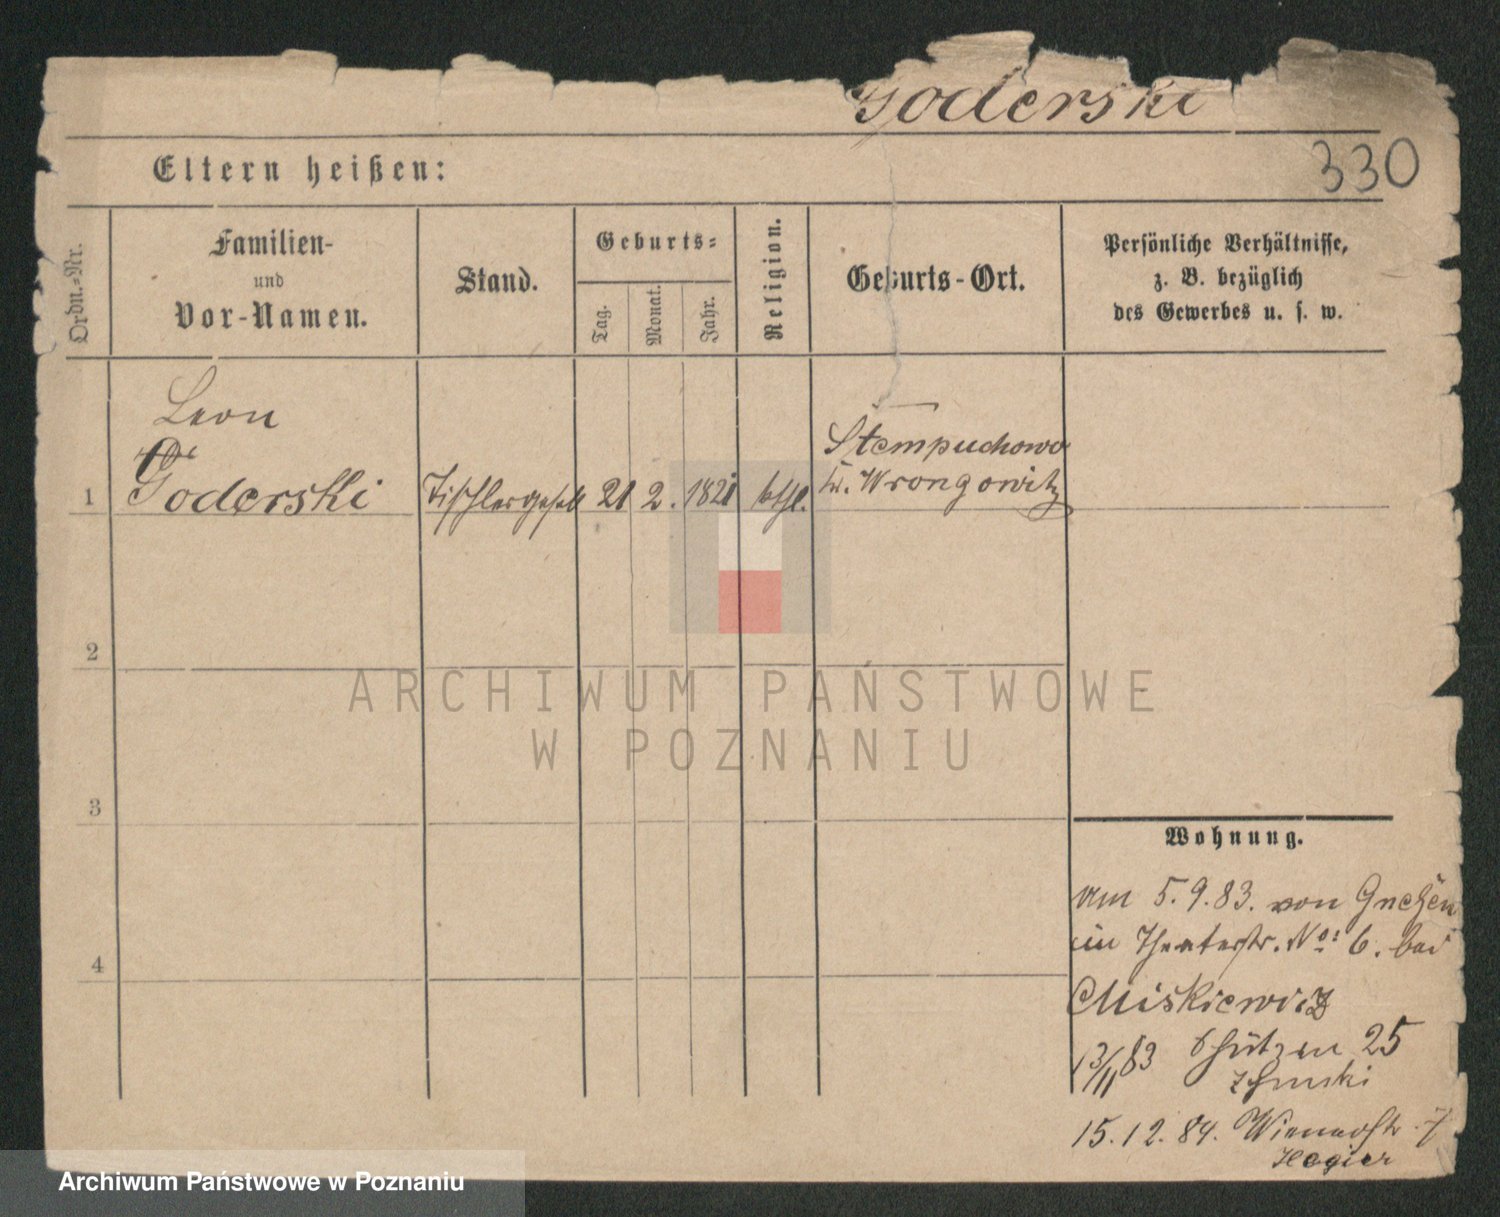 Goderski
330
Eltern heißen:
Ordn.-Nr.
Familien-
und
Vor-Namen.
Stand.
Geburts-
Tag.
Monat.
Jahr.
Religion.
Geburts-Ort.
Persönliche Verhältnisse,
z. B. bezüglich
des Gewerbes u. s. w.
Leon
1 Goderski Tischlergesell 21 2. 1821 kthl.
Stempuchowo
Kr. Wrongowitz
2
3
4
ARCHIWUM PAŃSTWOWE
W POZNANIU
Wohnung.
am 5.9.83. von Gnesen
in Theaterstr. No: 6. bei
Miskiewicz
13/11 83 Schützen 25
15.12.84. Wienerstr. 7
Archiwum Państwowe w Poznaniu